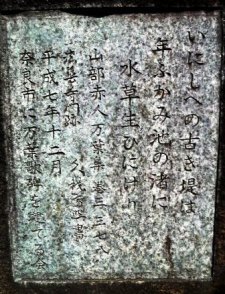 いにしへの古き堤は
年ふかみ池の渚に
水草生ひにけり
山部赤人万葉集巻三 三七八
平成七年十二月
奈良市に万葉歌碑を建てる会